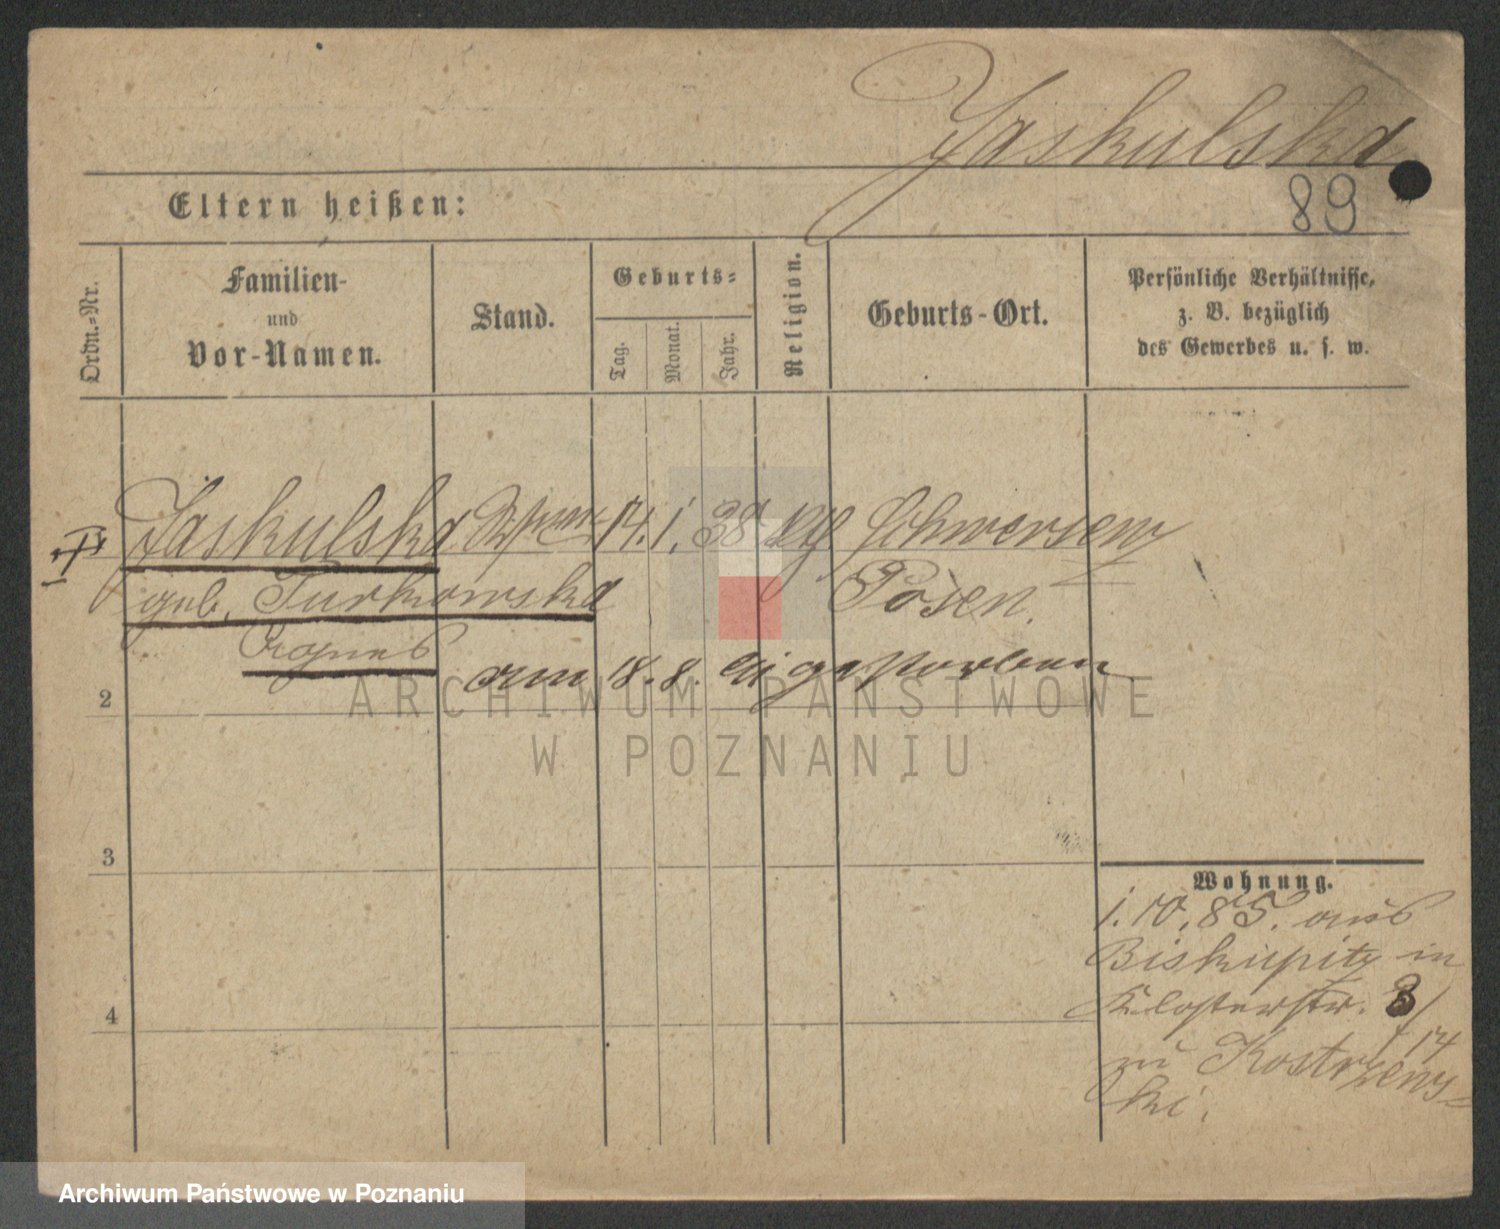 Jaskulska
89
Eltern heißen:
Ordn.-Nr.
Familien-
und
Vor-Namen.
Stand.
Geburts-
Tag.
Monat.
Jahr.
Religion.
Geburts-Ort.
Persönliche Verhältnisse,
z. B. bezüglich
des Gewerbes u. s. w.
Jaskulska 14. 1. 38 kth Schwersenz
geb. Turkowska Posen.
Agnes
am 18. 8. 91 gestorben
2
3
4
Wohnung.
1. 10. 85. aus
Biskupitz in
Klosterstr. 8/
14
zu Kostrzews-
ki.
ARCHIWUM PAŃSTWOWE
W POZNANIU
Archiwum Państwowe w Poznaniu